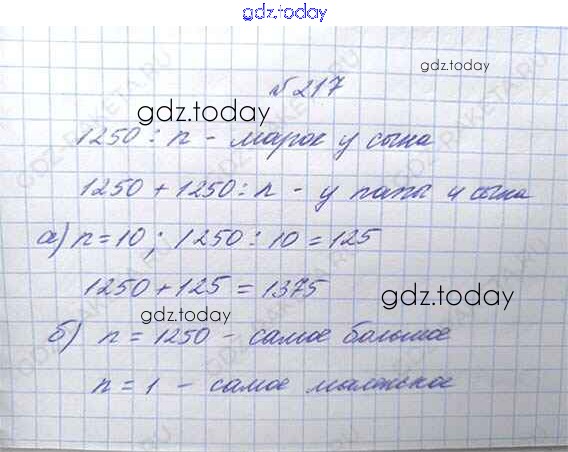 gdz.today
№ 217
gdz.today
gdz.today
1250 : n - марок у сына
1250 + 1250 : n - у папы и сына
а) n = 10 ; 1250 : 10 = 125
1250 + 125 = 1375
gdz.today
gdz.today
б) n = 1250 - самое большое
n = 1 - самое маленькое